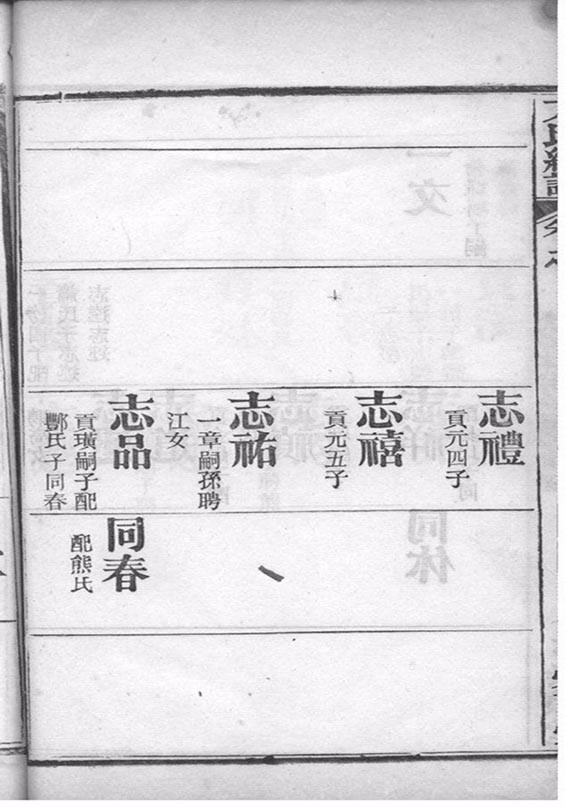 志禮
貢元四子
志禧
貢元五子
志祐
一章嗣孫聘
江女
志品
貢璜嗣子配
酆氏子同春
同春
配熊氏